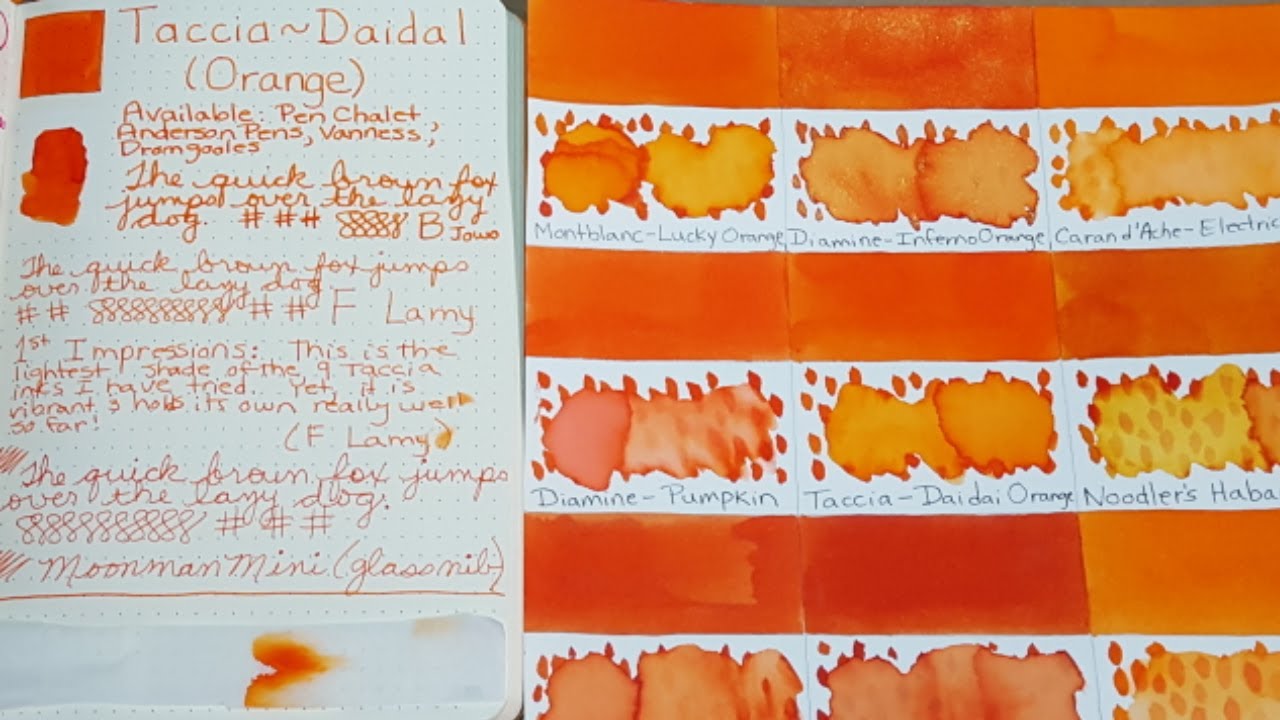 Taccia~Daidal
(Orange)
Available: Pen Chalet
Anderson Pens, Vanness,
Dromgooles
The quick brown fox
jumps over the lazy
dog. # # # B Jowo
The quick brown fox jumps
over the lazy dog
# # # # F Lamy
1st Impressions: This is the
lightest shade of the 9 Taccia
inks I have tried. Yet, it is
vibrant & holds its own really well
so far!
(F Lamy)
The quick brown fox jumps
over the lazy dog.
# # #
Moonman Mini (glass nib)
Montblanc-Lucky Orange
Diamine-Inferno Orange
Caran d'Ache-Electric
Diamine-Pumpkin
Taccia-Daidai Orange
Noodler's Haba